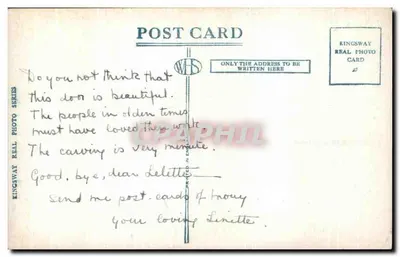 POST CARD
KINGSWAY
REAL PHOTO
CARD
WHS
ONLY THE ADDRESS TO BE
WRITTEN HERE
KINGSWAY REAL PHOTO SERIES
Do you not think that
this door is beautiful.
The people in olden times
must have loved their work
The carving is very minute.
Good. bye, dear Lilette
Send me post. cards of
your loving Linette
DELCAMPE